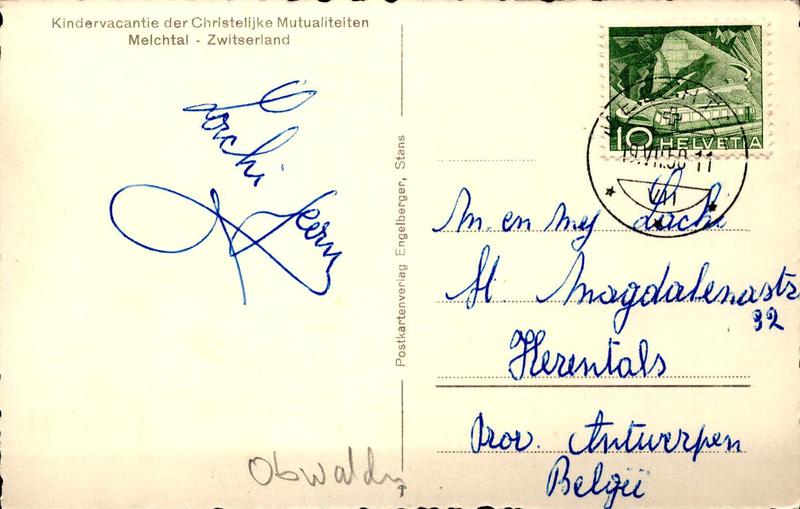 Kindervacantie der Christelijke Mutualiteiten
Melchtal - Zwitserland
10 HELVETIA
VII
Lochi
Postkartenverlag Engelberger, Stans
M. en Mej Lochi
St. Magdalenastr
92
Herentals
Prov. Antwerpen
België
Obwalden